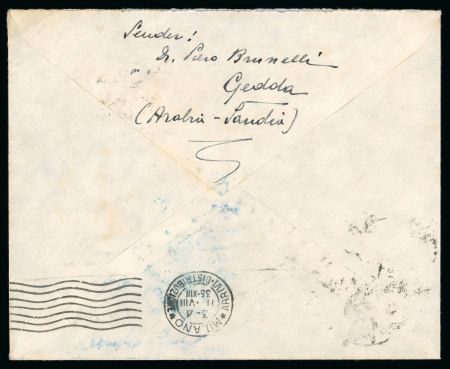 Sender!
Dr. Piero Brunelli
Gedda
(Arabia-Saudia)
MILANO
ARRIVI-DISTRIBUZIONE
3-4
11·VIII
35·XIII